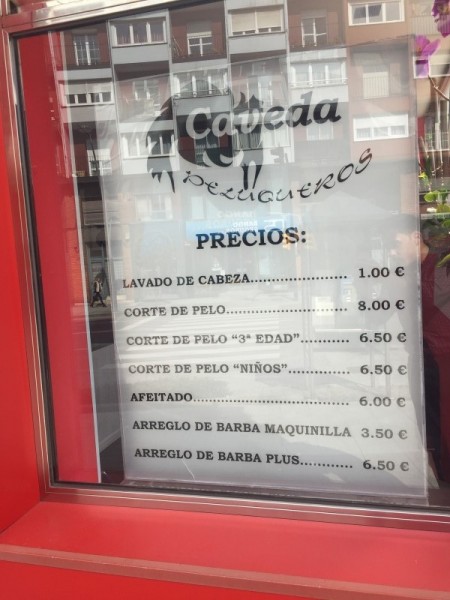 Caveda
PELUQUEROS
PRECIOS:
LAVADO DE CABEZA...................... 1.00 €
CORTE DE PELO............................ 8.00 €
CORTE DE PELO “3ª EDAD”........... 6.50 €
CORTE DE PELO “NIÑOS”.............. 6.50 €
AFEITADO...................................... 6.00 €
ARREGLO DE BARBA MAQUINILLA 3.50 €
ARREGLO DE BARBA PLUS............ 6.50 €